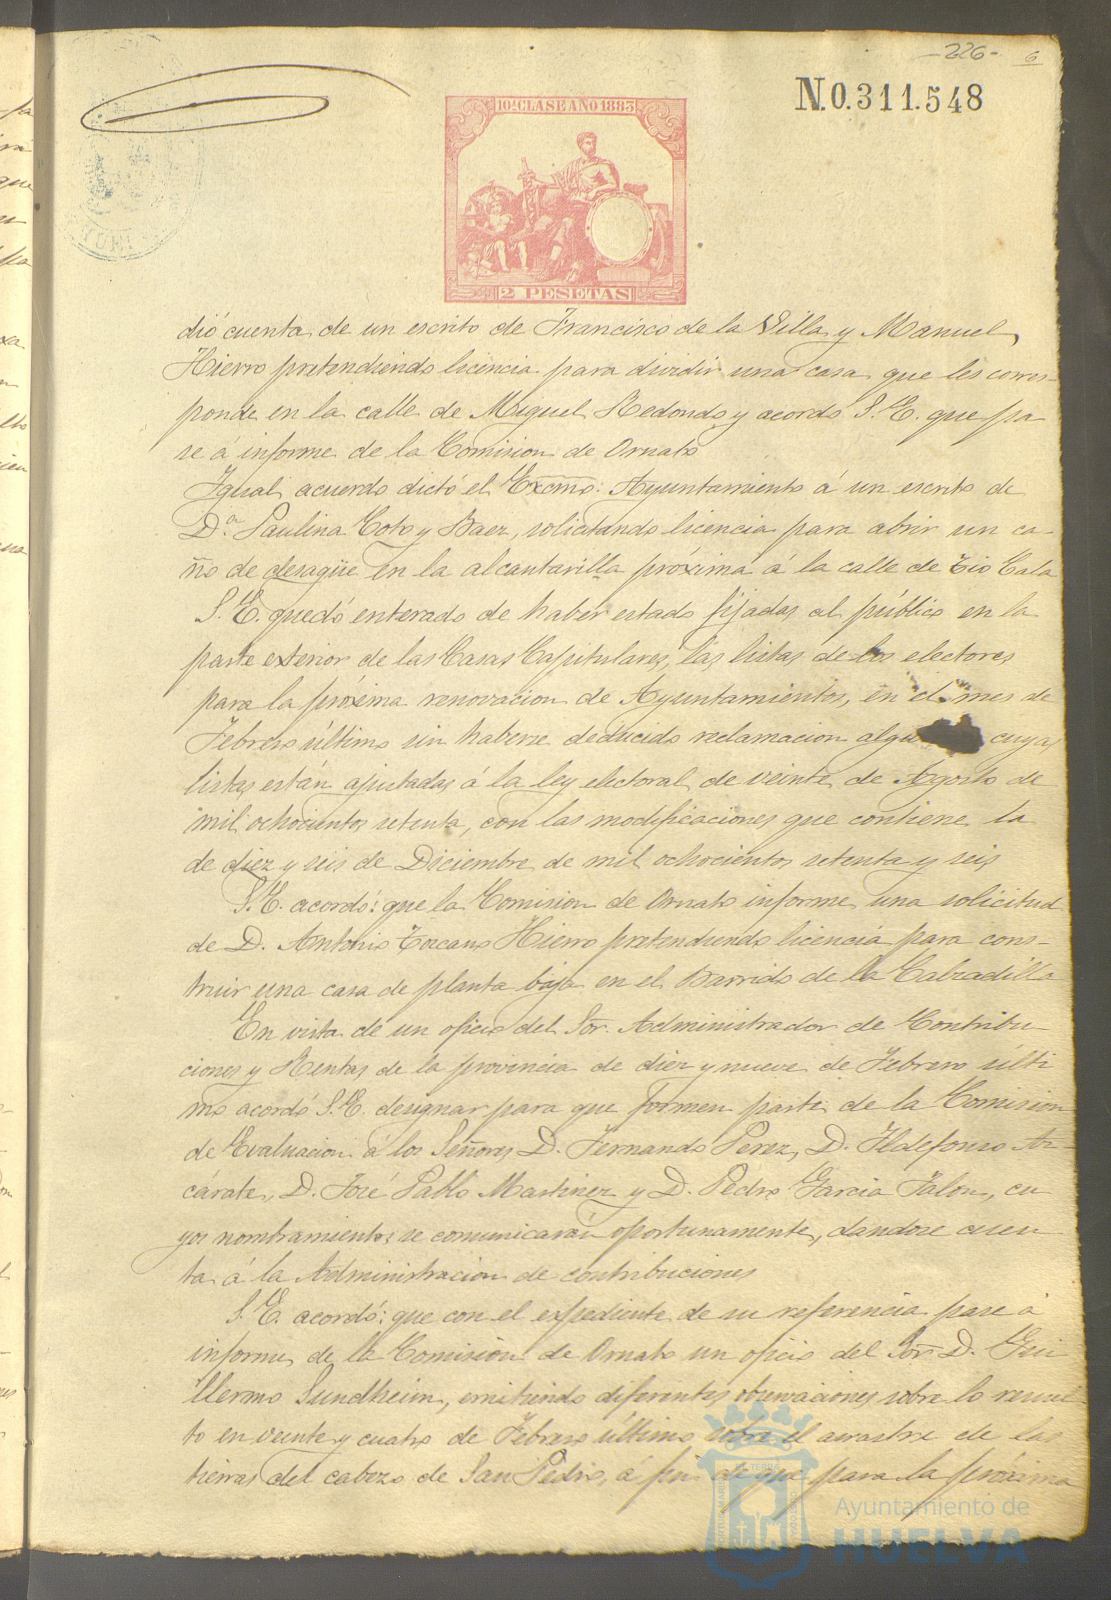 -226- 6
N.0.311.548
10ª CLASE AÑO 1883
2 PESETAS
dió cuenta de un escrito de Francisco de la Villa y Manuel
Hierro pretendiendo licencia para dividir una casa que les corres-
ponde en la calle de Miguel Redondo y acordó S.E. que pa
se á informe de la Comision de Ornato
Igual acuerdo dictó el Excmo. Ayuntamiento á un escrito de
D.ª Paulina Coto y Baez, solicitando licencia para abrir un ca-
ño de desagüe en la alcantarilla próxima á la calle de Tio Cala
S.E. quedó enterado de haber estado fijadas al público en la
parte exterior de las Casas Capitulares, las listas de los electores
para la próxima renovacion de Ayuntamientos, en el mes de
Febrero último sin haberse deducido reclamacion algu cuyas
listas están ajustadas á la ley electoral de veinte de Agosto de
mil ochocientos setenta, con las modificaciones que contiene la
de diez y seis de Diciembre de mil ochocientos setenta y seis
S.E. acordó: que la Comision de Ornato informe una solicitud
de D. Antonio Toscano Hierro pretendiendo licencia para cons-
truir una casa de planta baja en el Barrido de la Calzadilla
En vista de un oficio del Sor. Administrador de Contribu-
ciones y Rentas de la provincia de diez y nueve de Febrero últi
mo acordó S.E. designar para que formen parte de la Comision
de Evaluacion á los Señores D. Fernando Perez, D. Ildefonso Az-
cárate, D. José Pablo Martinez y D. Pedro Garcia Jalon, cu
yos nombramientos se comunicarán oportunamente, dandose cuen
ta á la Administracion de contribuciones
S.E. acordó: que con el expediente de su referencia pase á
informe de la Comision de Ornato un oficio del Sor. D. Gui
llermo Sundheim, emitiendo diferentes observaciones sobre lo resuel
to en veinte y cuatro de Febrero último sobre el arrastre de las
tierras del cabezo de San Pedro, á fin de que para la próxima
Ayuntamiento de
HUELVA